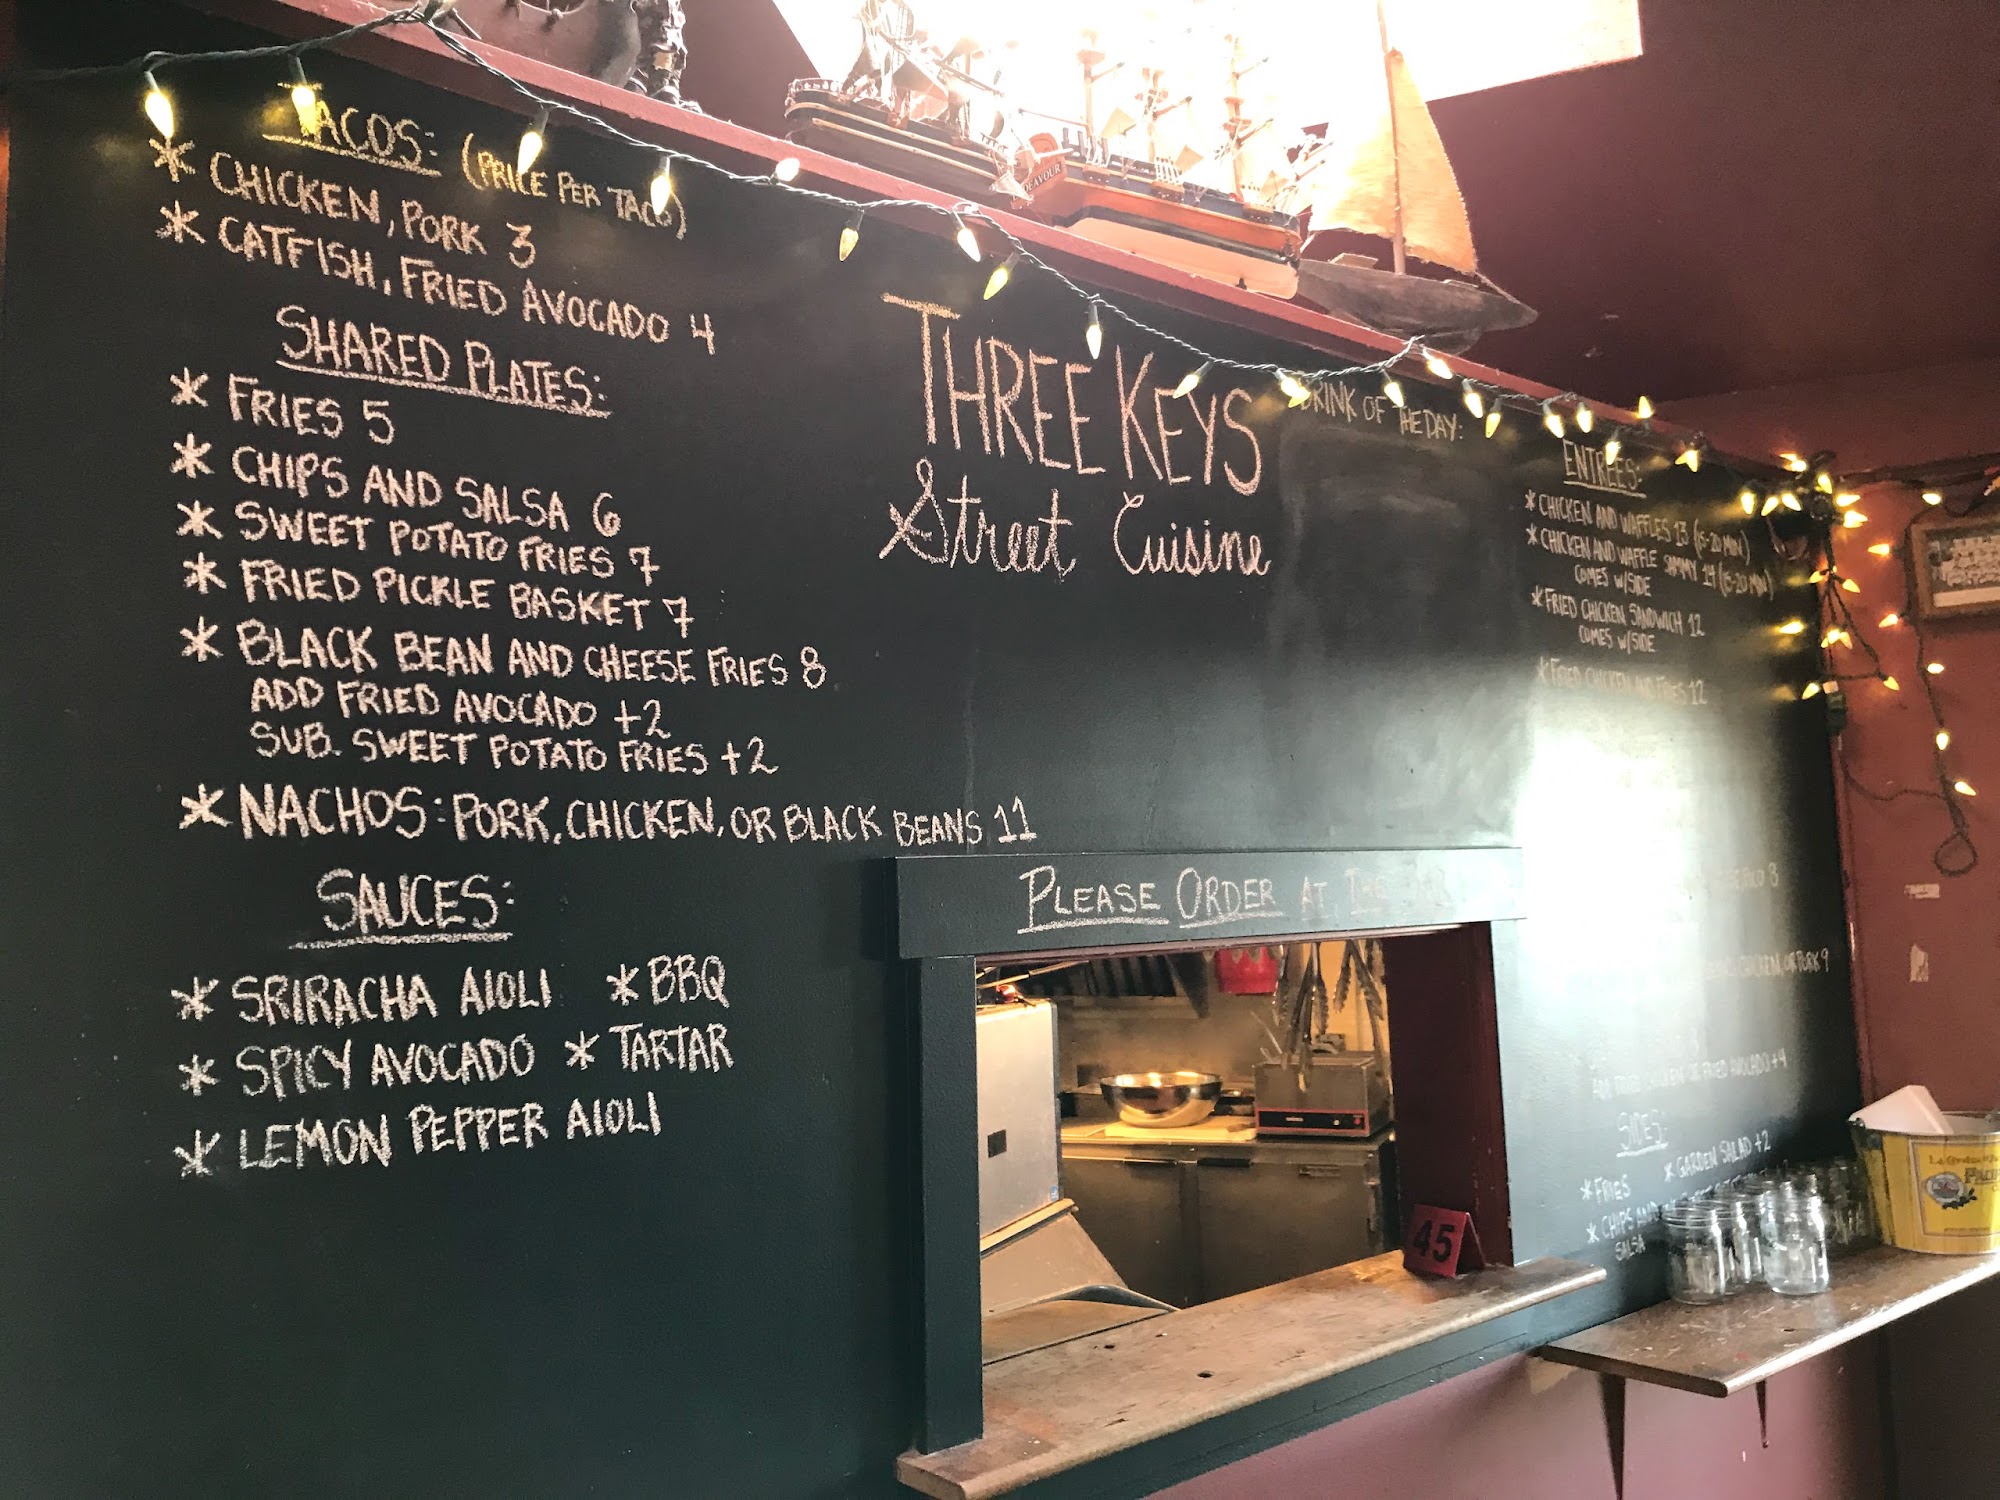 TACOS: (PRICE PER TACO)
* CHICKEN, PORK 3
* CATFISH, FRIED AVOCADO 4
SHARED PLATES:
* FRIES 5
* CHIPS AND SALSA 6
* SWEET POTATO FRIES 7
* FRIED PICKLE BASKET 7
* BLACK BEAN AND CHEESE FRIES 8
ADD FRIED AVOCADO +2
SUB. SWEET POTATO FRIES +2
* NACHOS: PORK, CHICKEN, OR BLACK BEANS 11
SAUCES:
* SRIRACHA AIOLI * BBQ
* SPICY AVOCADO * TARTAR
* LEMON PEPPER AIOLI
THREE KEYS
Street Cuisine
DRINK OF THE DAY:
PLEASE ORDER AT THE
45
ENTREES:
* CHICKEN AND WAFFLES 13 (15-20 MIN)
* CHICKEN AND WAFFLE SAMMY 14 (15-20 MIN)
COMES W/SIDE
* FRIED CHICKEN SANDWICH 12
COMES W/SIDE
* FRIED CHICKEN AND FRIES 12
8
CHICKEN, OR PORK 9
FRIED CHICKEN OR FRIED AVOCADO +4
SIDES:
* FRIES * GARDEN SALAD +2
* CHIPS AND
SALSA